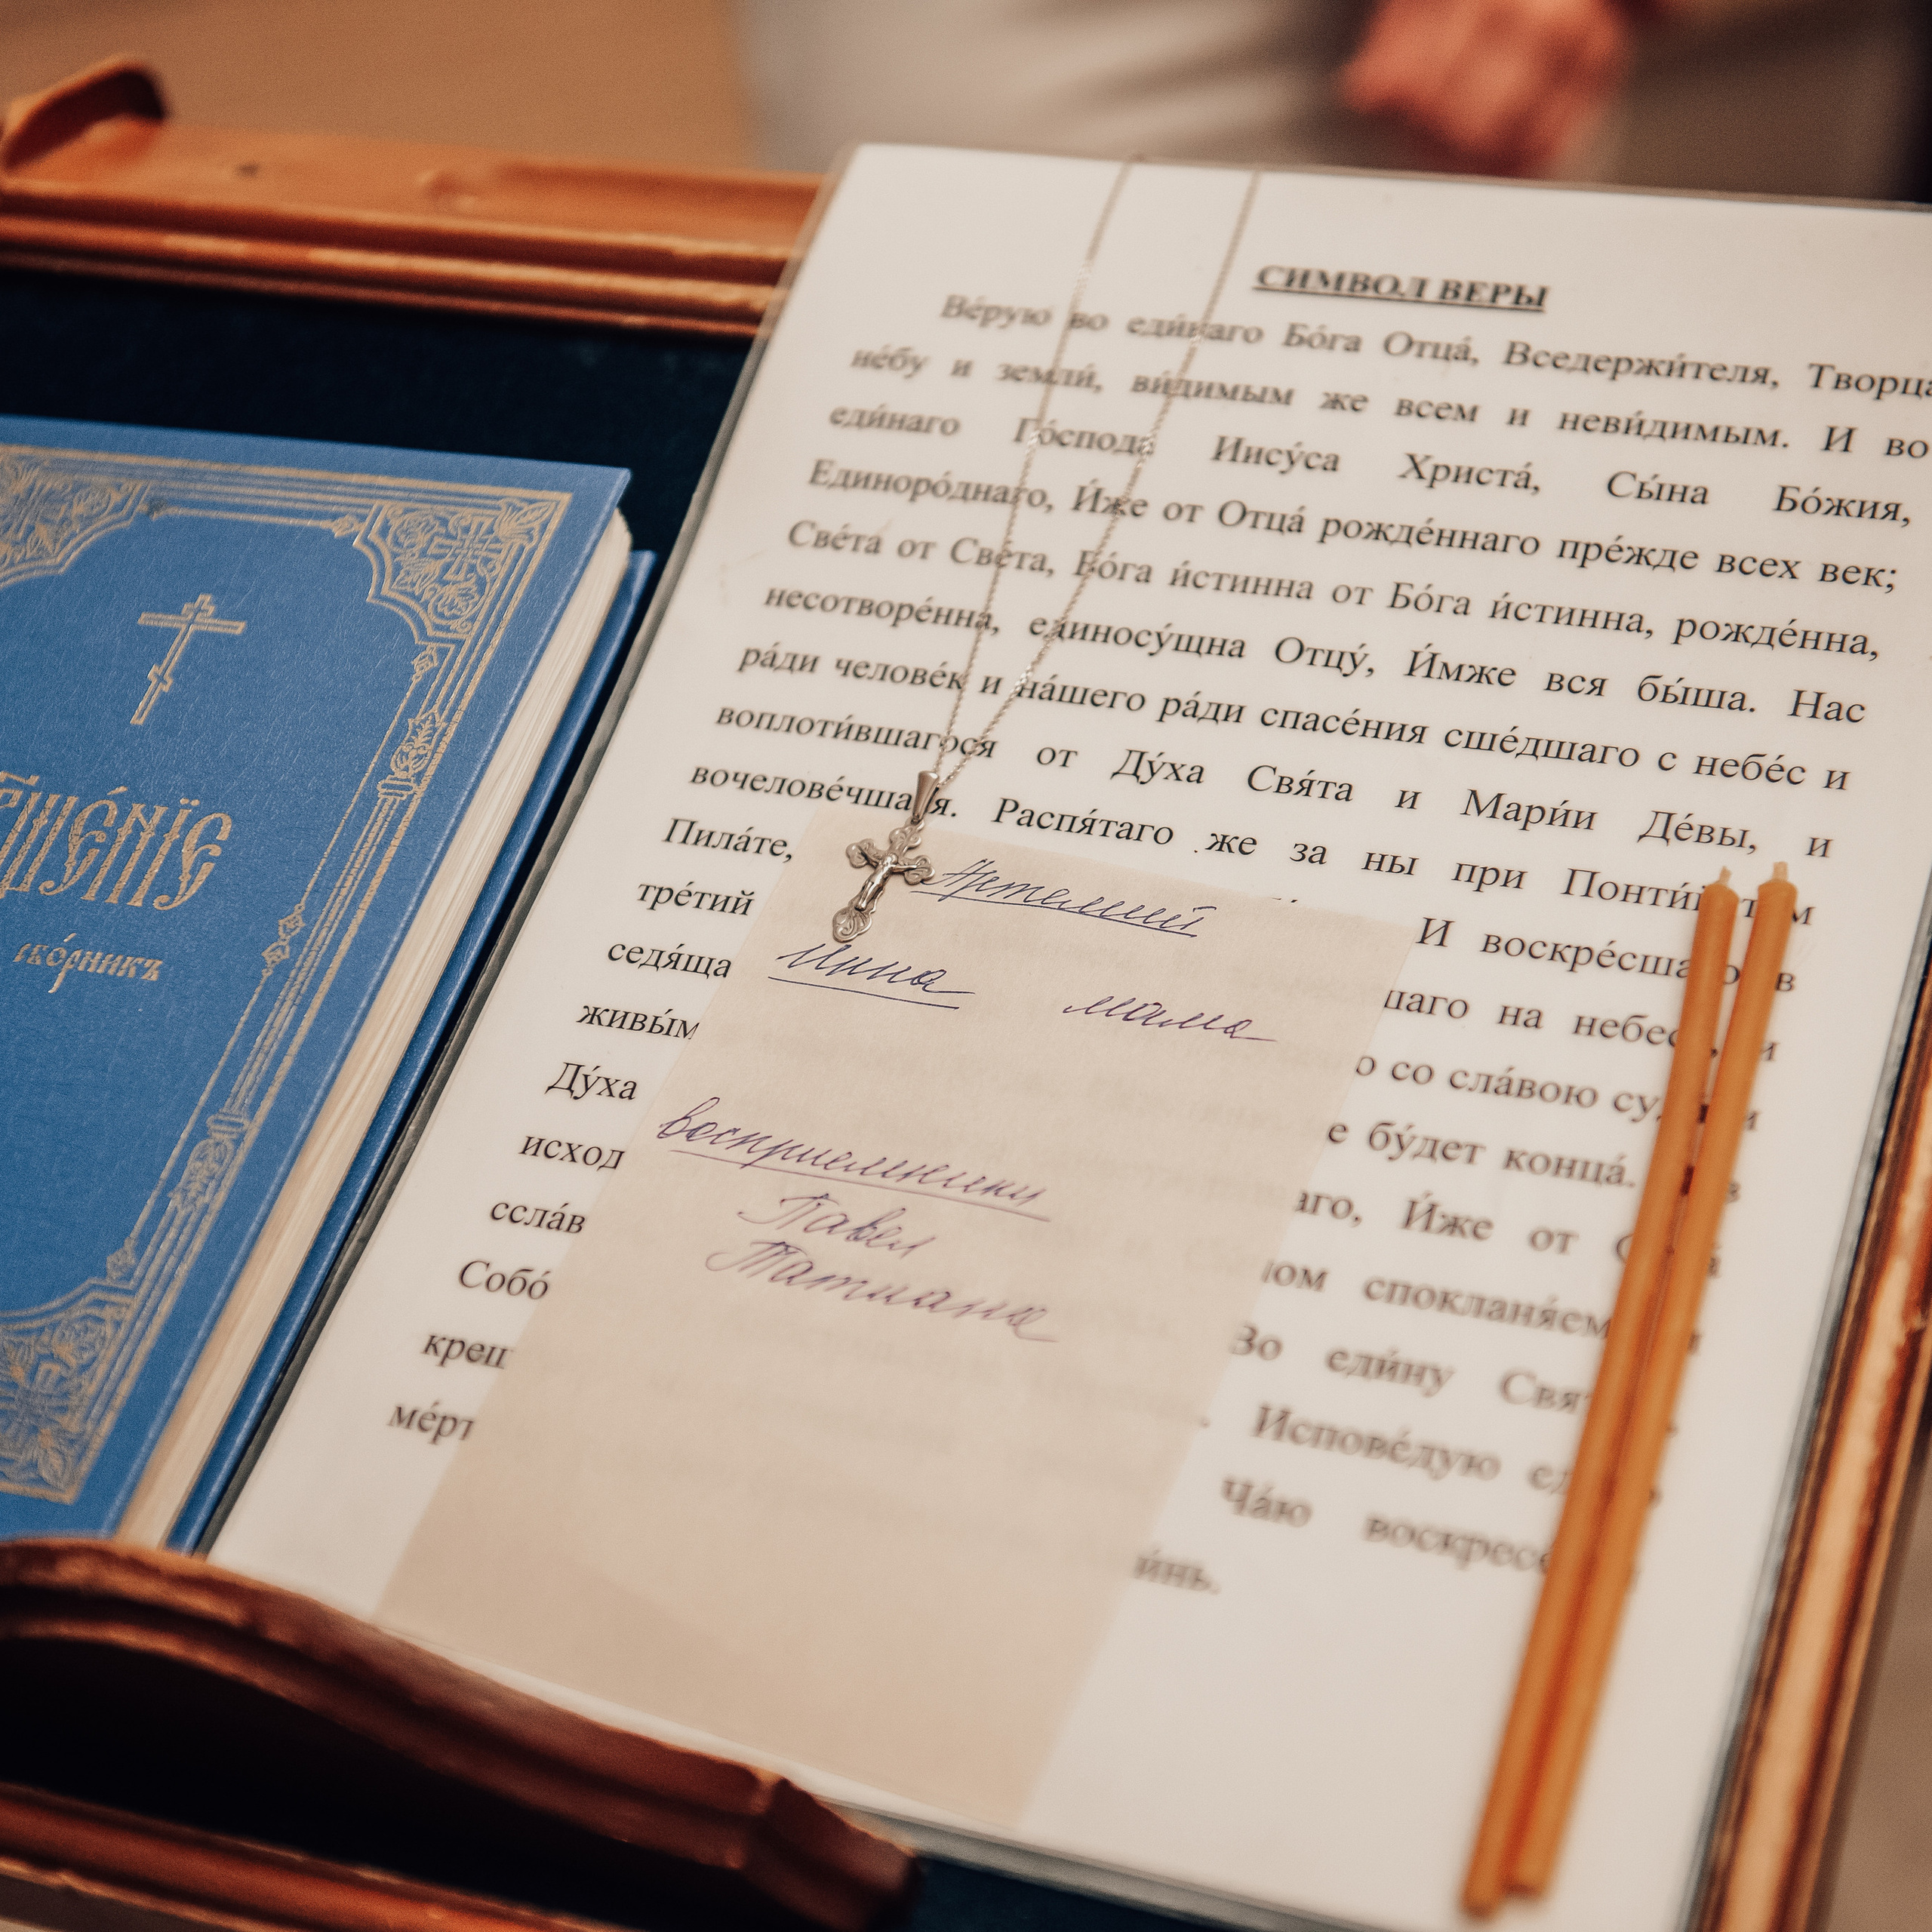 сборникъ
СИМВОЛ ВЕРЫ
Ве́рую во еди́наго Бо́га Отца́, Вседержи́теля, Творца
не́бу и земли́, ви́димым же всем и неви́димым. И во
еди́наго Го́спода Иису́са Христа́, Сы́на Бо́жия,
Единоро́днаго, И́же от Отца́ рожде́ннаго пре́жде всех век;
Све́та от Све́та, Бо́га и́стинна от Бо́га и́стинна, рожде́нна,
несотворе́нна, единосу́щна Отцу́, И́мже вся бы́ша. Нас
ра́ди челове́к и на́шего ра́ди спасе́ния сше́дшаго с небе́с и
воплоти́вшагося от Ду́ха Свя́та и Мари́и Де́вы, и
вочелове́чшася. Распя́таго же за ны при Понти́йстем
Пила́те, И воскре́сшаго в
тре́тий шаго на небеса, и
седя́ща о со сла́вою суди́ти
живы́м е бу́дет конца́. в
Ду́ха аго, И́же от
исход ом спокланя́ема
ссла́в Во еди́ну Свя
Собо́ Испове́дую ед
крещ Ча́ю воскресе
ме́рт и́нь.
Артемий
Инна мама
восприемники
Павел
Татиана